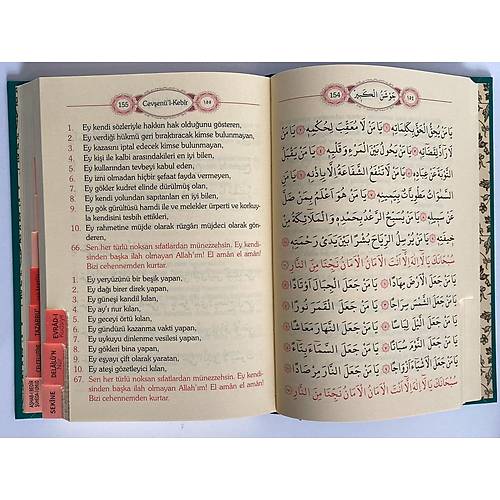 155 Cevşenü'l-Kebîr ١٥٥
1. Ey kendi sözleriyle hakkın hak olduğunu gösteren,
2. Ey verdiği hükmü geri bıraktıracak kimse bulunmayan,
3. Ey kazasını iptal edecek kimse bulunmayan,
4. Ey kişi ile kalbi arasındakileri en iyi bilen,
5. Ey kullarından tevbeyi kabul eden,
6. Ey izni olmadan hiçbir şefaat fayda vermeyen,
7. Ey gökler kudret elinde dürülmüş olan,
8. Ey kendi yolundan sapıtanları en iyi bilen,
9. Ey gök gürültüsü hamdi ile ve melekler ürperti ve korkuy-
la kendisini tesbih ettikleri,
10. Ey rahmetine müjde olarak rüzgârı müjdeci olarak gön-
deren,
66. Sen her türlü noksan sıfatlardan münezzehsin. Ey kendi-
sinden başka ilah olmayan Allah'ım! El amân el amân!
Bizi cehennemden kurtar.
1. Ey yeryüzünü bir beşik yapan,
2. Ey dağı birer direk yapan,
3. Ey güneşi kandil kılan,
4. Ey ay'ı nur kılan,
5. Ey geceyi örtü kılan,
6. Ey gündüzü kazanma vakti yapan,
7. Ey uykuyu dinlenme vesilesi yapan,
8. Ey gökleri bina yapan,
9. Ey eşyayı çift olarak yaratan,
10. Ey ateşi gözetleyici kılan,
67. Sen her türlü noksan sıfatlardan münezzehsin. Ey kendi-
sinden başka ilah olmayan Allah'ım! El amân el amân!
Bizi cehennemden kurtar.
SEKİNE
DELÂİLÜ'N
Nur
EVRÂD-I
154 جَوْشَنُ الْكَبِيرِ ١٥٤
يَا مَنْ يُحِقُّ الْحَقَّ بِكَلِمَاتِهِ يَا مَنْ لَا مُعَقِّبَ لِحُكْمِهِ يَا مَنْ
لَا رَادَّ لِقَضَائِهِ يَا مَنْ يَحُولُ بَيْنَ الْمَرْءِ وَقَلْبِهِ يَا مَنْ يَقْبَلُ
التَّوْبَةَ عَنْ عِبَادِهِ يَا مَنْ لَا تَنْفَعُ الشَّفَاعَةُ اِلَّا بِاِذْنِهِ يَا مَنِ
السَّمٰوَاتُ مَطْوِيَّاتٌ بِيَمِينِهِ يَا مَنْ هُوَ اَعْلَمُ بِمَنْ ضَلَّ
عَنْ سَبِيلِهِ يَا مَنْ يُسَبِّحُ الرَّعْدُ بِحَمْدِهِ وَالْمَلٰٓئِكَةُ مِنْ
خِيفَتِهِ يَا مَنْ يُرْسِلُ الرِّيَاحَ بُشْرًا بَيْنَ يَدَيْ رَحْمَتِهِ
سُبْحَانَكَ يَا لَا اِلٰهَ اِلَّا اَنْتَ الْاَمَانُ الْاَمَانُ نَجِّنَا مِنَ النَّارِ
يَا مَنْ جَعَلَ الْاَرْضَ مِهَادًا يَا مَنْ جَعَلَ الْجِبَالَ اَوْتَادًا يَا
مَنْ جَعَلَ الشَّمْسَ سِرَاجًا يَا مَنْ جَعَلَ الْقَمَرَ نُورًا يَا
مَنْ جَعَلَ الَّيْلَ لِبَاسًا يَا مَنْ جَعَلَ النَّهَارَ مَعَاشًا يَا
مَنْ جَعَلَ النَّوْمَ سُبَاتًا يَا مَنْ جَعَلَ السَّمَاءَ بِنَاءً يَا
مَنْ جَعَلَ الْاَشْيَاءَ اَزْوَاجًا يَا مَنْ جَعَلَ النَّارَ مِرْصَادًا
سُبْحَانَكَ يَا لَا اِلٰهَ اِلَّا اَنْتَ الْاَمَانُ الْاَمَانُ نَجِّنَا مِنَ النَّارِ